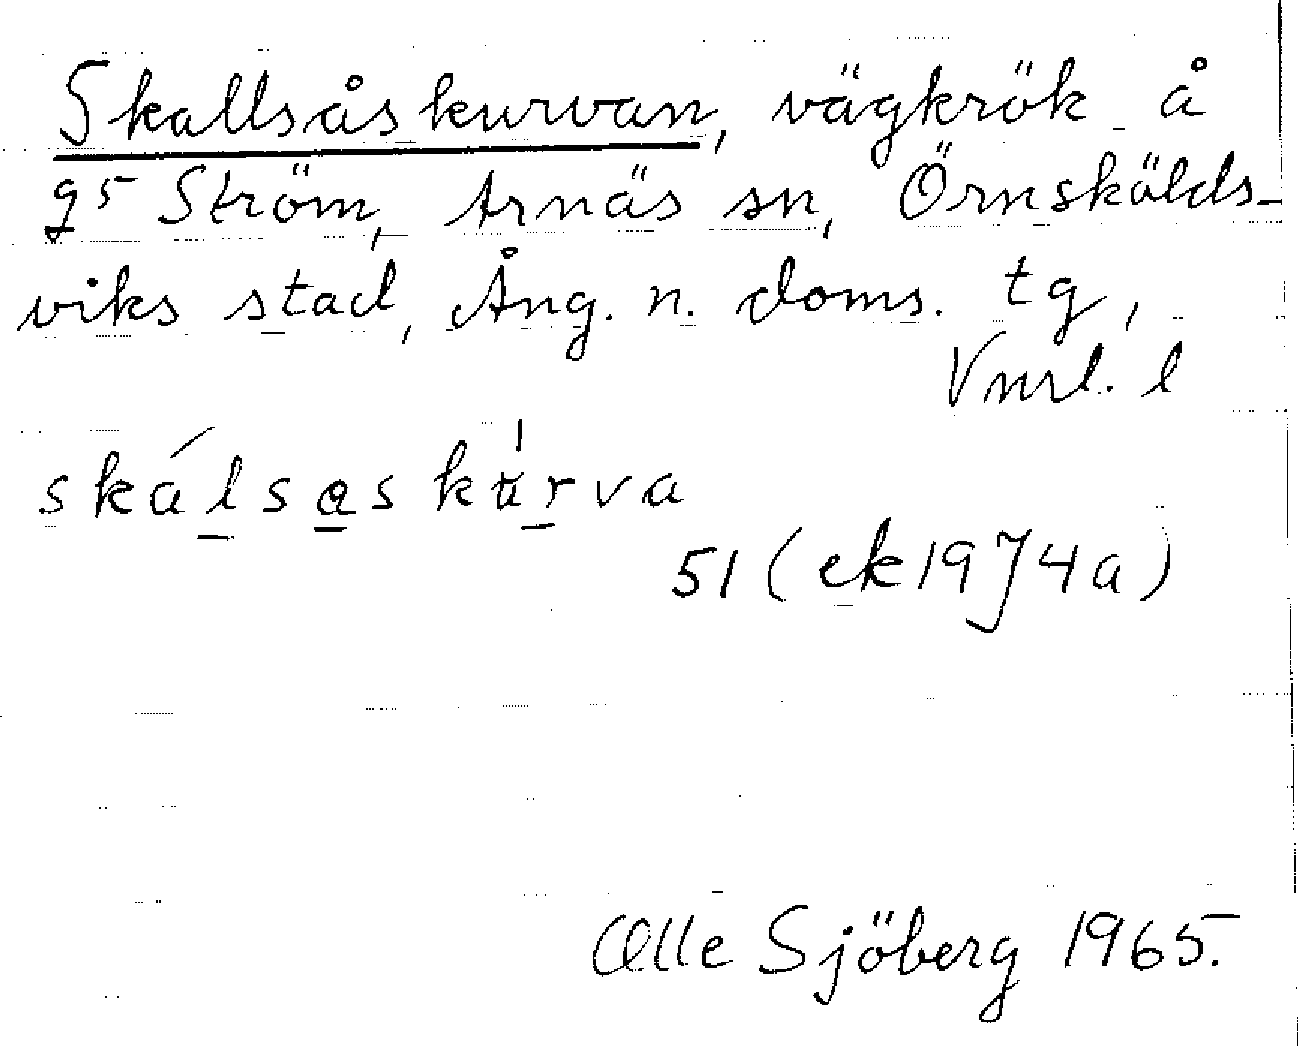 Skallsåskurvan, vägkrök å
g⁵ Ström, Arnäs sn, Örnskölds-
viks stad, Ång. n. doms. tg,
Vnrl. l
skálsɑskùrva
51 (ek 19J4a)
Olle Sjöberg 1965.